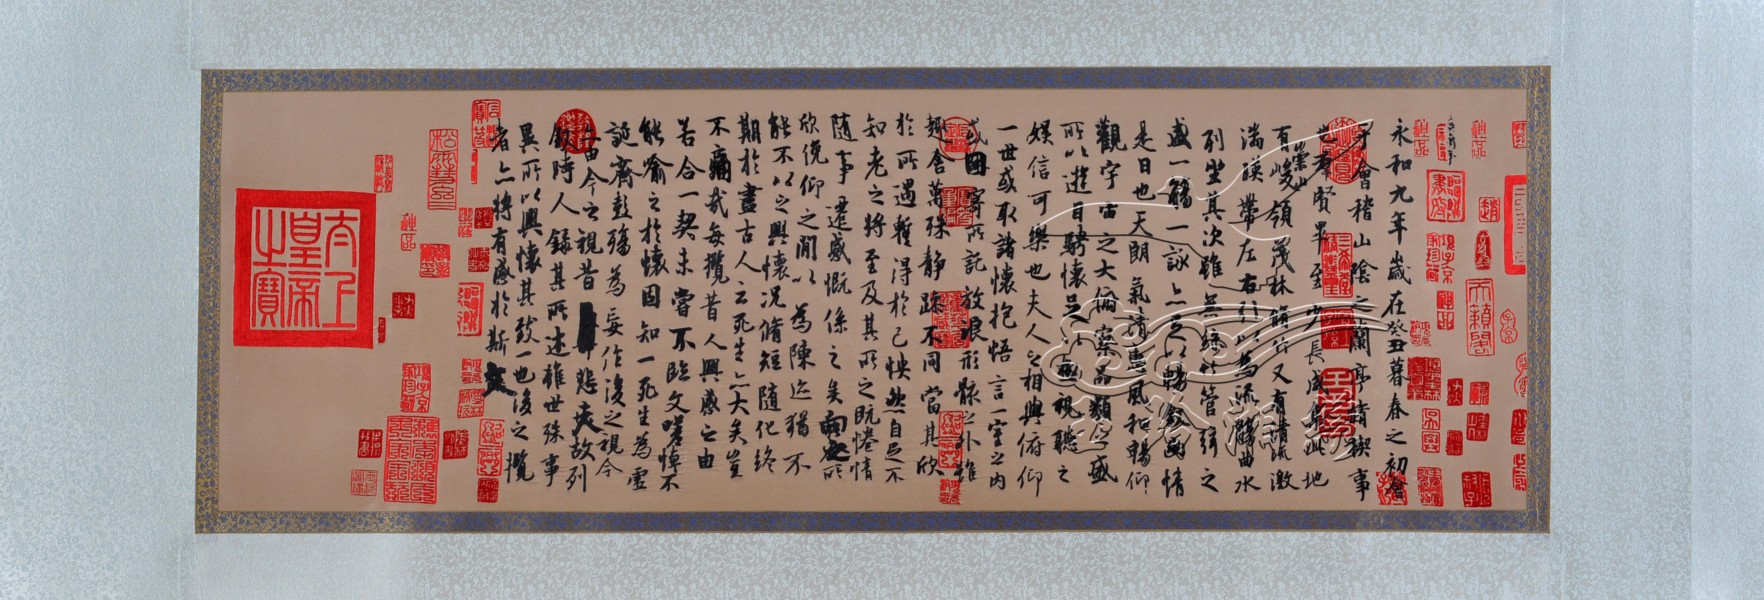 永和九年歲在癸丑暮春之初會
于會稽山陰之蘭亭脩禊事
也羣賢畢至少長咸集此地
有崇山峻領茂林脩竹又有清流激
湍暎帶左右引以為流觴曲水
列坐其次雖無絲竹管弦之
盛一觴一詠亦足以暢敘幽情
是日也天朗氣清惠風和暢仰
觀宇宙之大俯察品類之盛
所以遊目騁懷足以極視聽之
娛信可樂也夫人之相與俯仰
一世或取諸懷抱悟言一室之內
或因寄所託放浪形骸之外雖
趣舍萬殊靜躁不同當其欣
於所遇暫得於己怏然自足不
知老之將至及其所之既惓情
隨事遷感慨係之矣向之所
欣俛仰之閒以為陳迹猶不
能不以之興懷况脩短隨化終
期於盡古人云死生亦大矣豈
不痛哉每攬昔人興感之由
若合一契未嘗不臨文嗟悼不
能喻之於懷固知一死生為虛
誕齊彭殤為妄作後之視今
亦由今之視昔悲夫故列
敘時人錄其所述雖世殊事
異所以興懷其致一也後之攬
者亦將有感於斯文
太上皇帝之寶
天籟閣